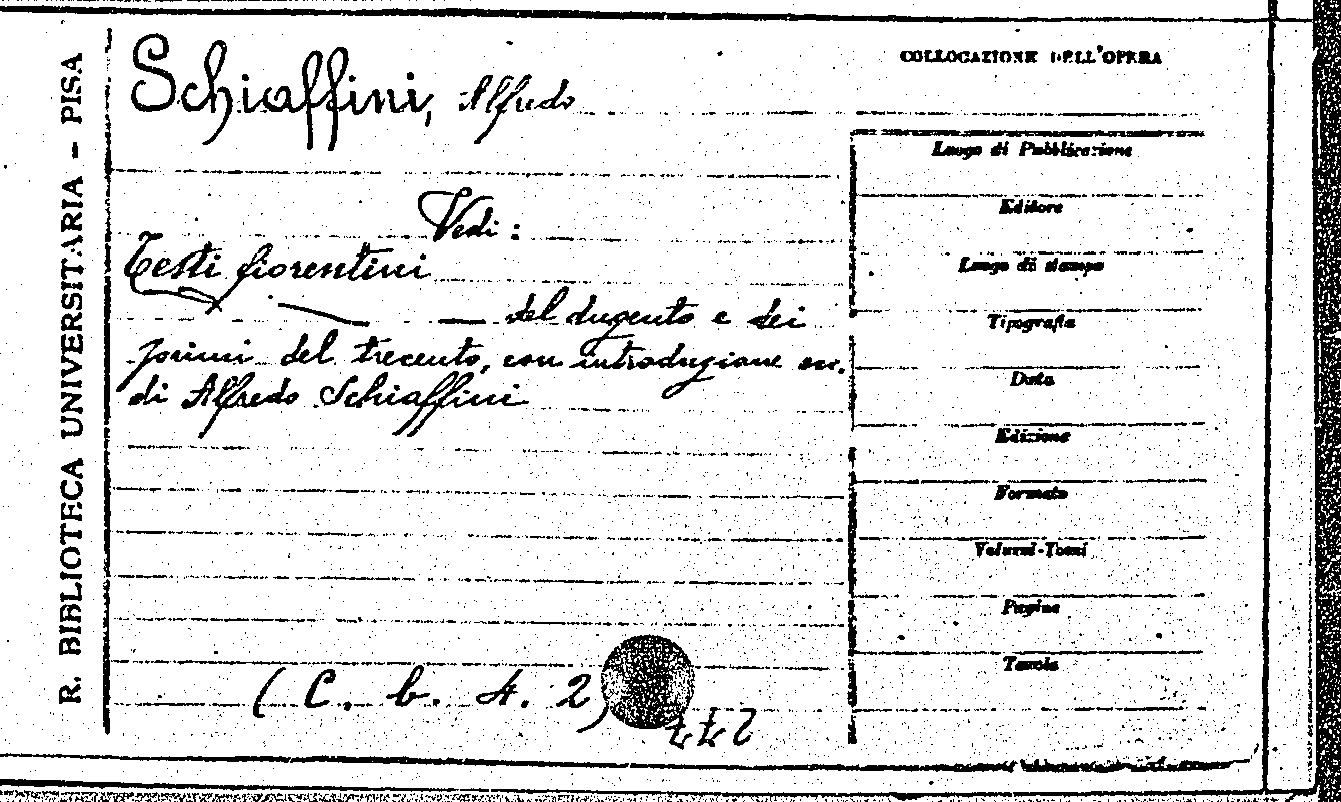 R. BIBLIOTECA UNIVERSITARIA - PISA
Schiaffini, Alfredo
Vedi:
Testi fiorentini
— — del dugento e dei
primi del trecento, con introduzione ecc.
di Alfredo Schiaffini
(C. b. 4. 2)
COLLOCAZIONE DELL'OPERA
Luogo di Pubblicazione
Editore
Luogo di stampa
Tipografia
Data
Edizione
Formato
Volumi-Tomi
Pagine
Tavole